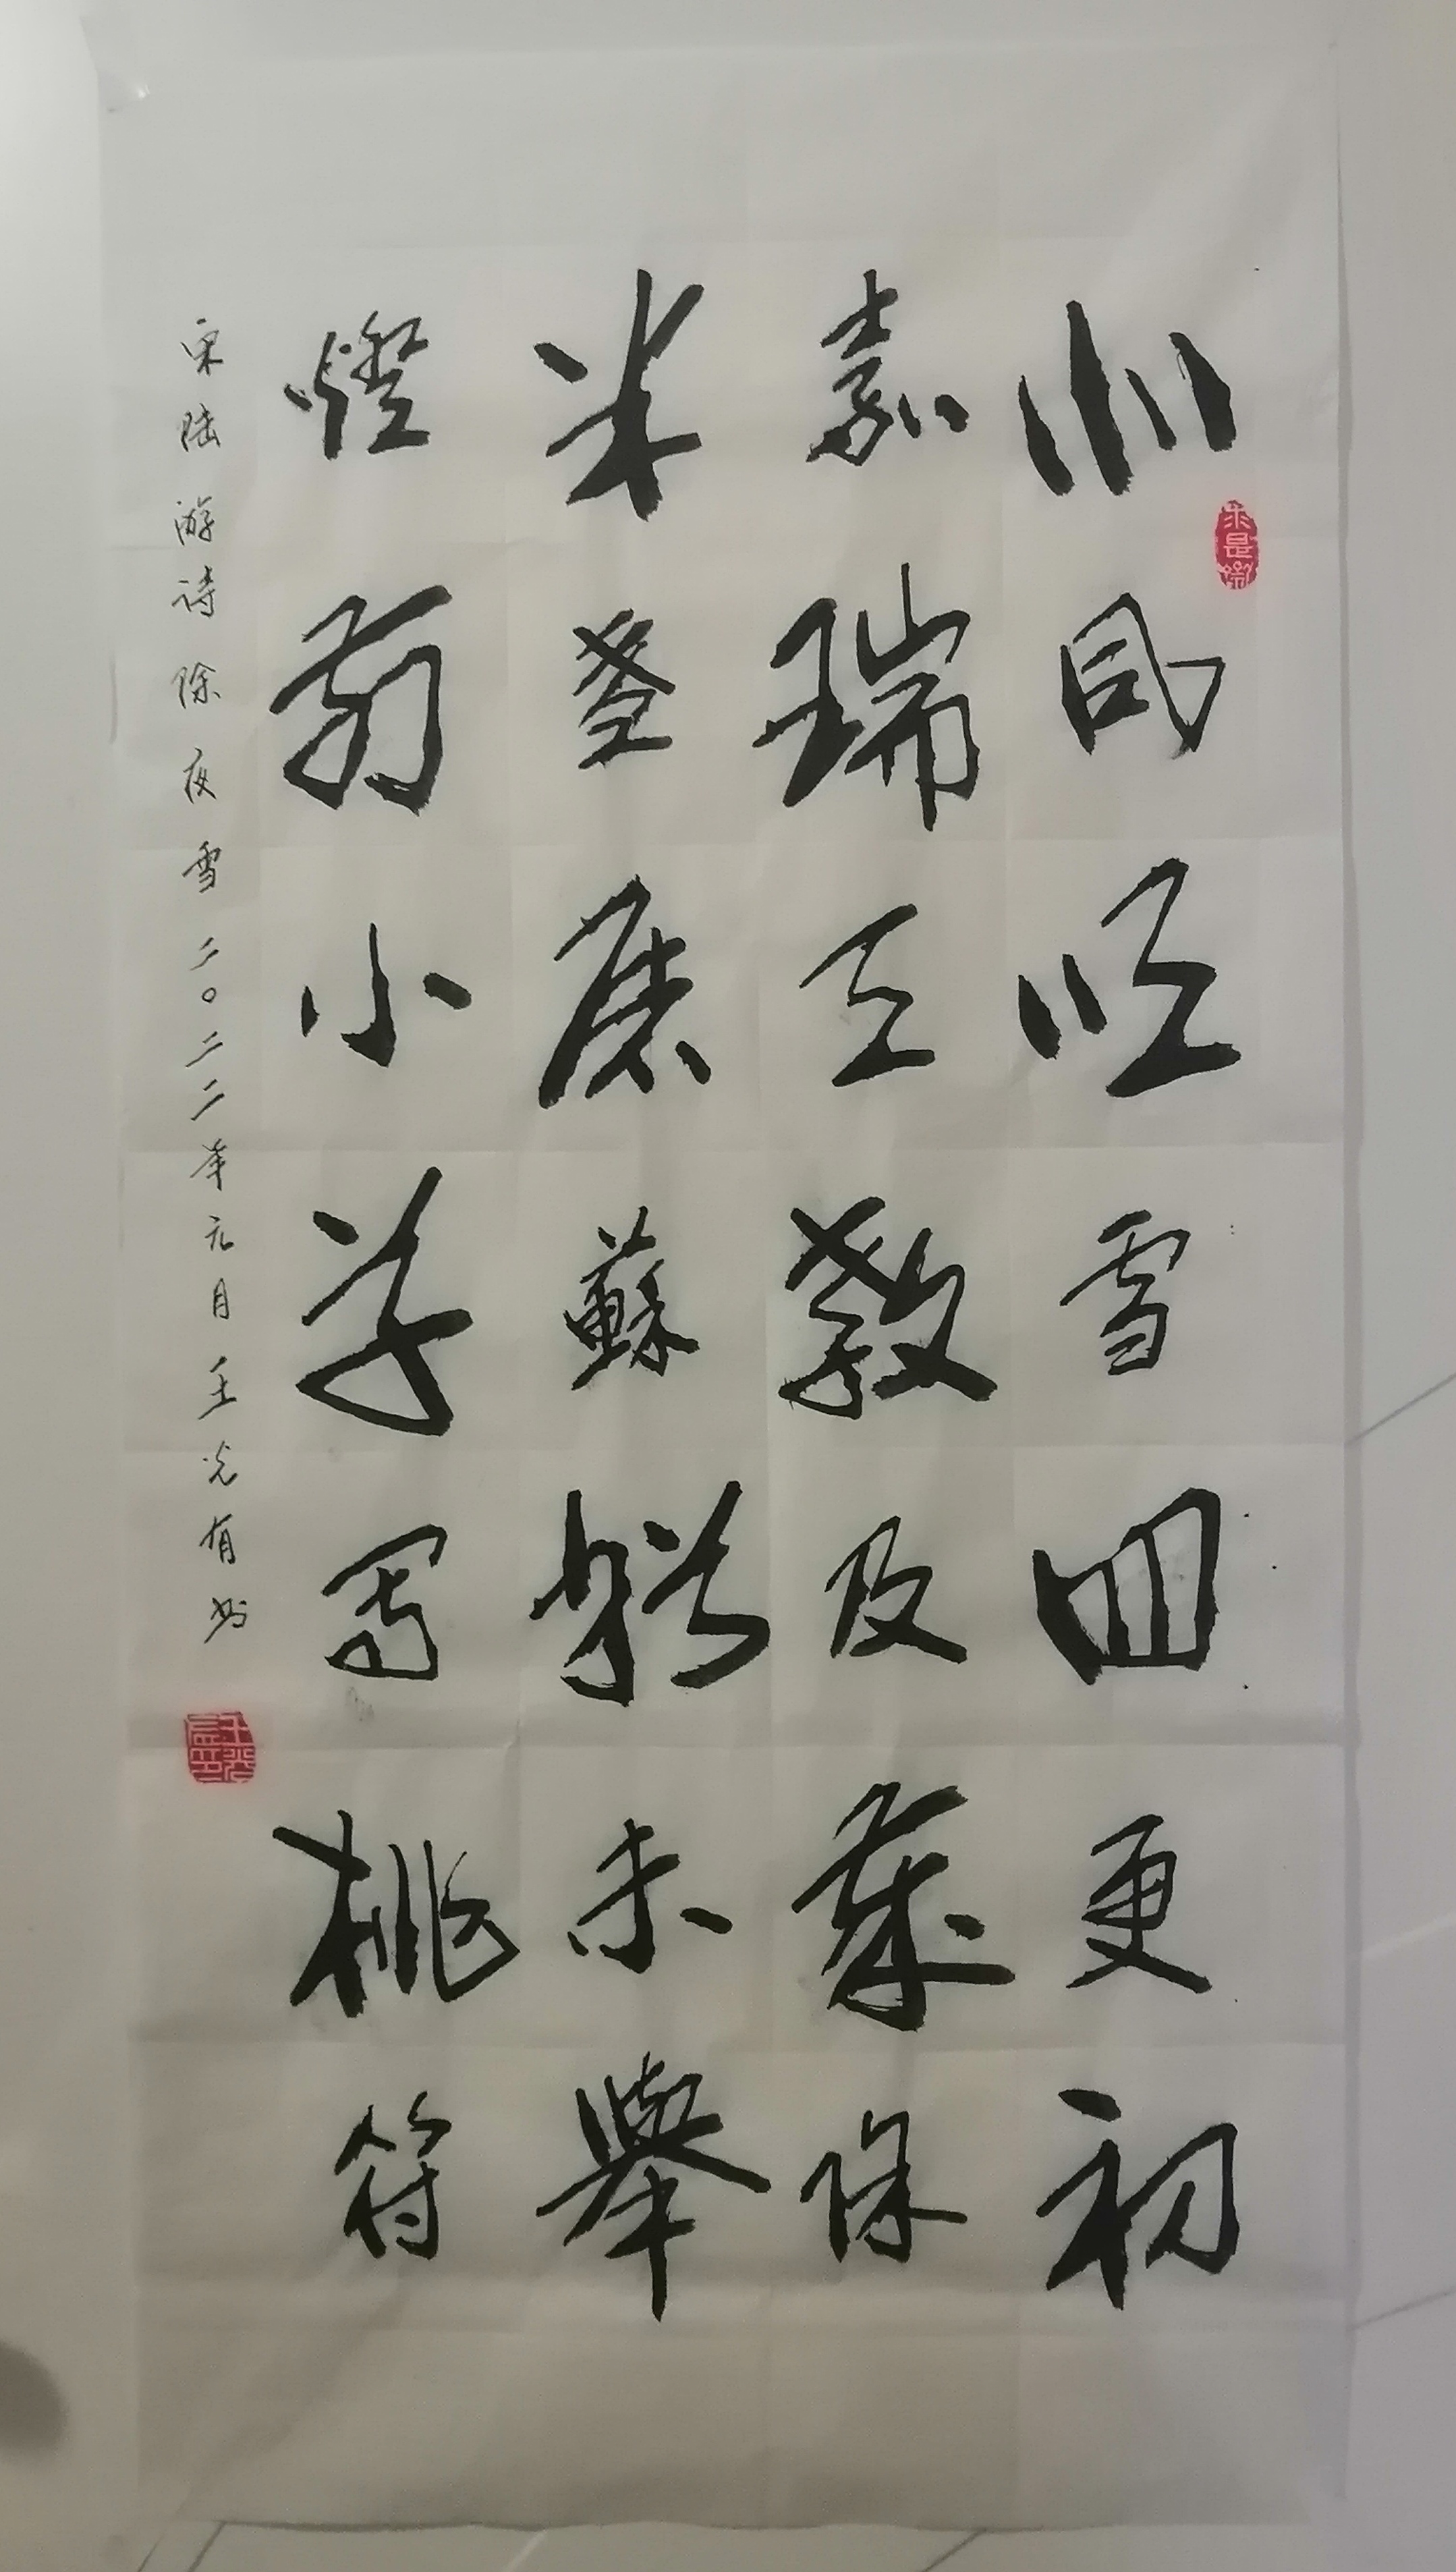 北風吹雪四更初
嘉瑞天教及歲除
半盞屠蘇猶未舉
燈前小草寫桃符
宋陆游诗除夜雪二〇二二年元月王光有书